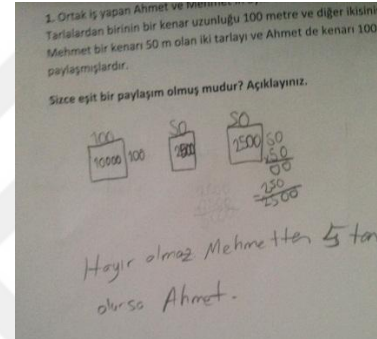 1. Ortak iş yapan Ahmet ve
Tarlalardan birinin bir kenar uzunluğu 100 metre ve diğer ikisinin
Mehmet bir kenarı 50 m olan iki tarlayı ve Ahmet de kenarı 100
paylaşmışlardır.
Sizce eşit bir paylaşım olmuş mudur? Açıklayınız.
100 50 50
10000 100 2500 2500 50
50
00
250
2500
Hayır olmaz Mehmetten 5 tan
olursa Ahmet.